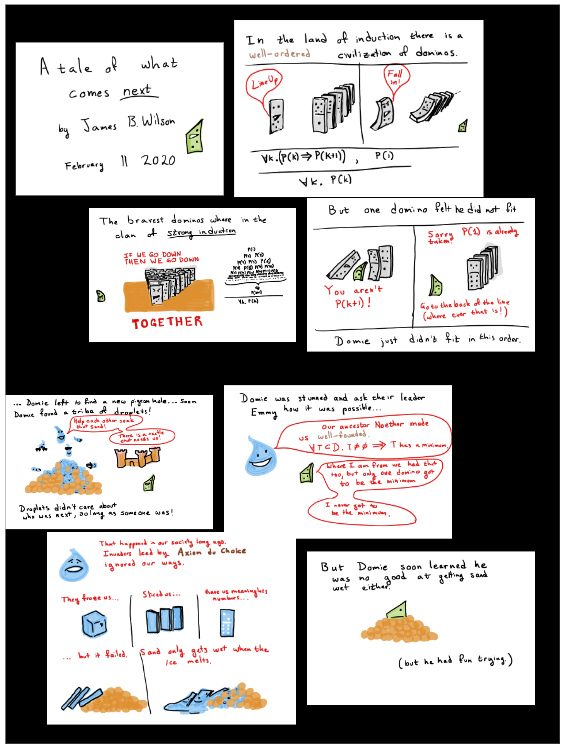 A tale of what
comes next
by James B. Wilson
February 11 2020
In the land of induction there is a
well-ordered civilization of dominos.
Line Up
Fall in!
∀k.(P(k) ⇒ P(k+1)) , P(1)
∀k. P(k)
The bravest dominos where in the
clan of strong induction
IF WE GO DOWN
THEN WE GO DOWN
TOGETHER
∀k, P(k)
But one domino felt he did not fit
You aren't
P(k+1)!
Sorry P(1) is already
taken?
Go to the back of the line
(where ever that is!)
Domie just didn't fit in this order.
... Domie left to find a new pigeon hole... Soon
Domie found a tribe of droplets!
Help each other soak
that sand!
There is a castle
that needs us!
Droplets didn't care about
who was next, so long as someone was!
Domie was stunned and ask their leader
Emmy how it was possible...
Our ancestor Noether made
us well-founded.
∀T⊂D. T≠∅ ⇒ T has a minimum.
Where I am from we had that
too, but only one domino got
to be the minimum
I never got to
be the minimum.
That happened in our society long ago.
Invaders lead by Axiom du Choice
ignored our ways.
They froze us...
Sliced us...
Gave us meaningless
numbers...
... but it failed.
Sand only gets wet when the
ice melts.
But Domie soon learned he
was no good at getting sand
wet either.
(but he had fun trying.)